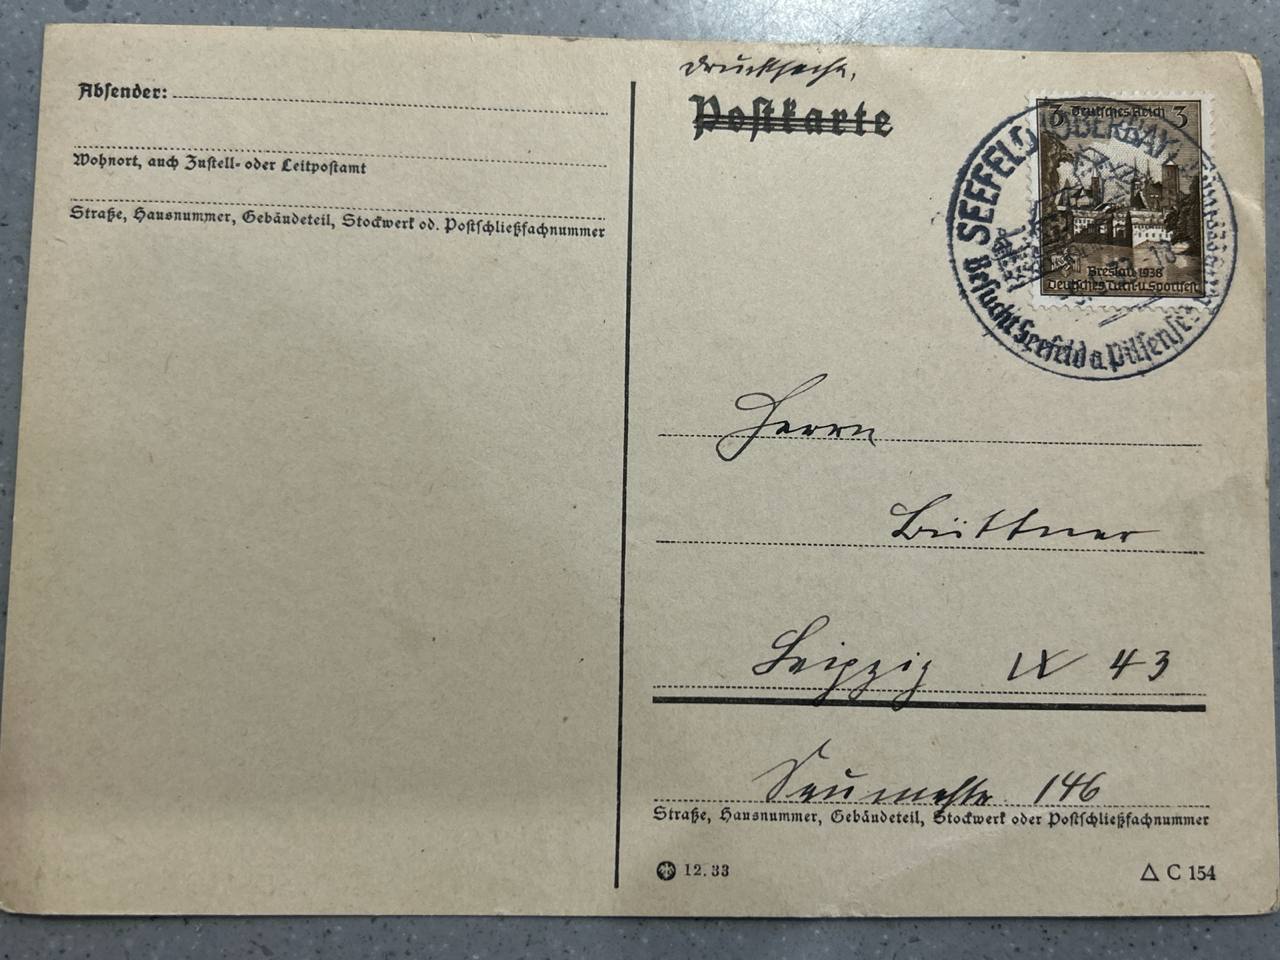 Absender:
Wohnort, auch Zustell- oder Leitpostamt
Straße, Hausnummer, Gebäudeteil, Stockwerk od. Postschließfachnummer
Drucksache.
Postkarte
3 Deutsches Reich 3
Breslau 1938
Deutsches Turn-u. Sportfest
SEEFELD (OBERBAY.)
Besucht Seefeld a. Pilsensee
Herrn
Büttner
Leipzig IX 43
146
Straße, Hausnummer, Gebäudeteil, Stockwerk oder Postschließfachnummer
12. 33
△ C 154